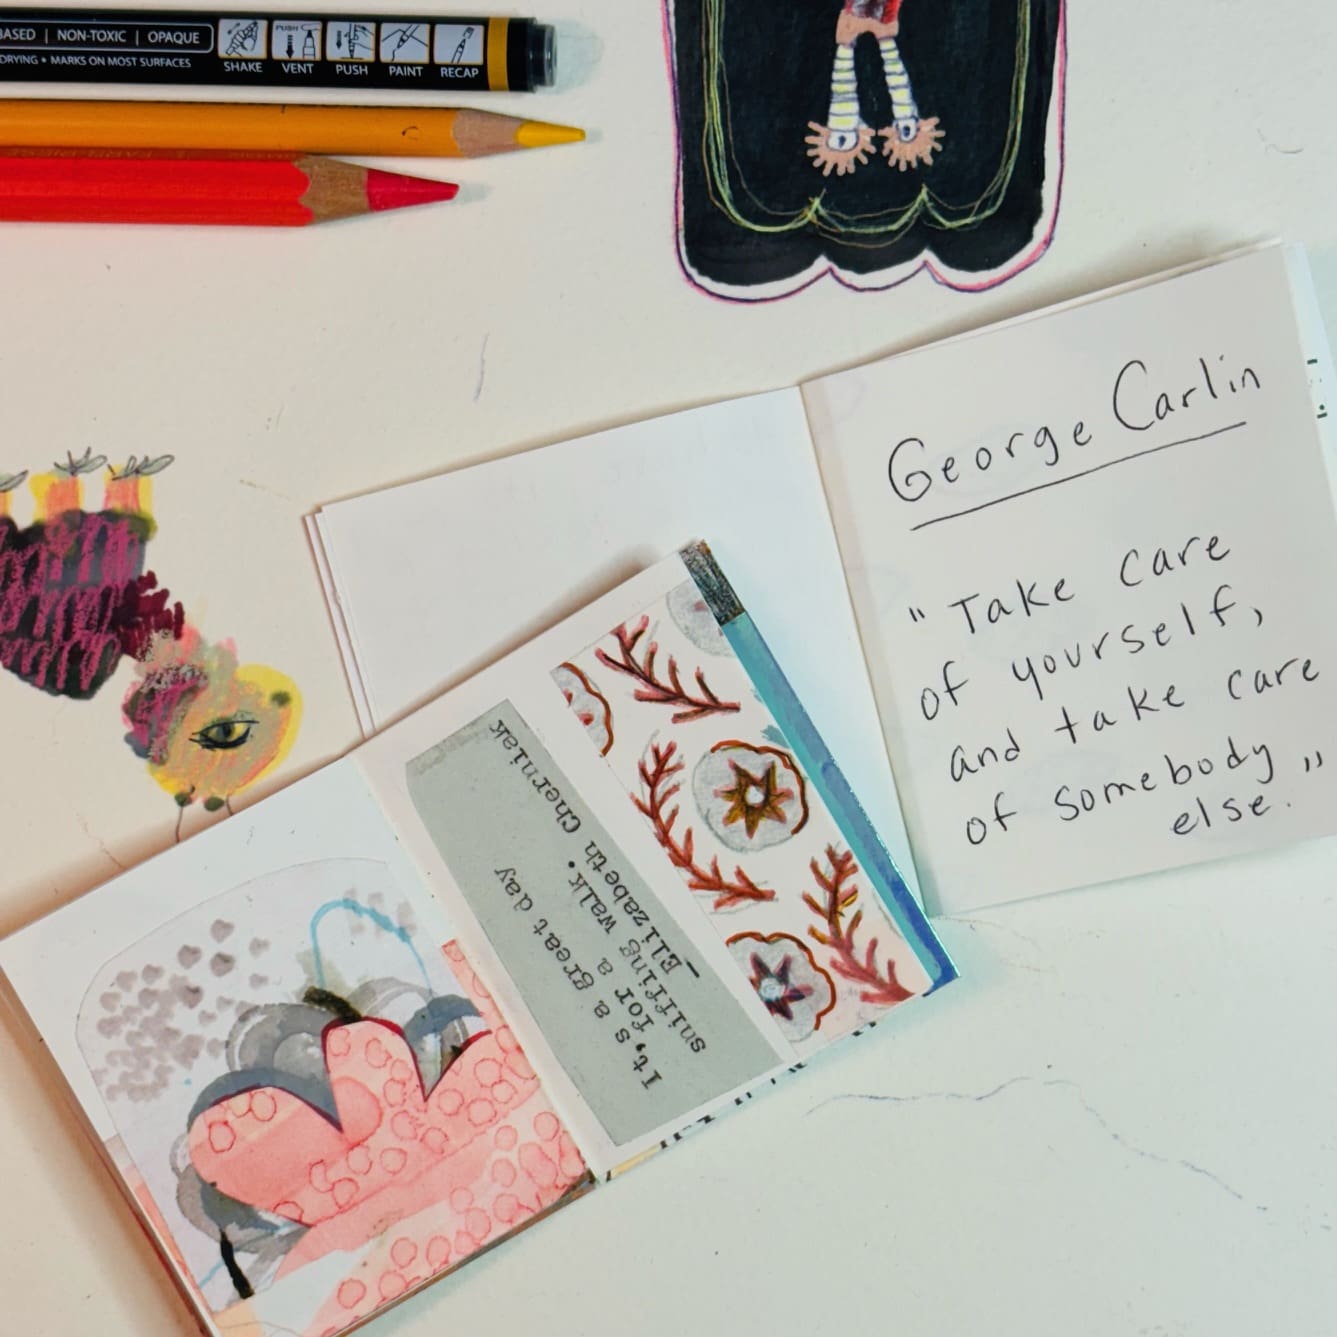 BASED | NON-TOXIC | OPAQUE
DRYING • MARKS ON MOST SURFACES
SHAKE
PUSH
VENT
PUSH
PAINT
RECAP
George Carlin
"Take care
of yourself,
and take care
of somebody
else."
It's a great day
for a
sniffing walk.
—Elizabeth Cherniak